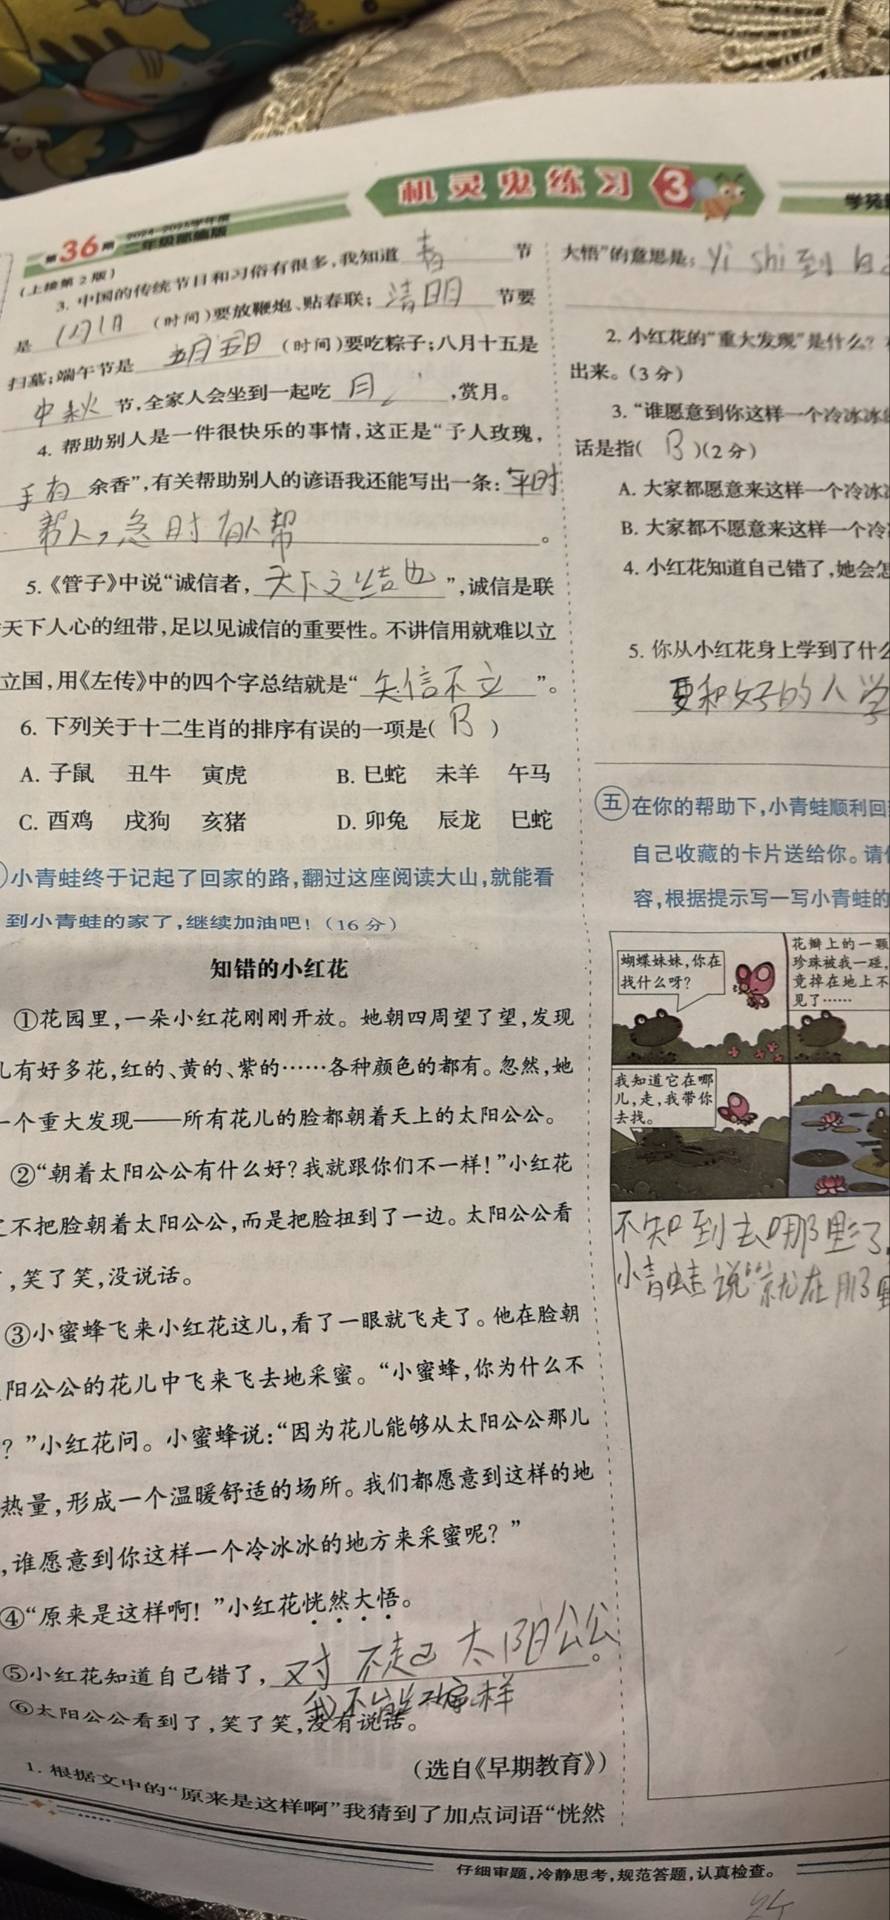 机灵鬼练习 3
学苑
第36期 2024-2025学年度
二年级部编版
(上接第2版)
3. 中国的传统节日和习俗有很多,我知道 春 节
是 1月1日 (时间)要放鞭炮、贴春联; 清明 节要
扫墓;端午节是 五月五日 (时间)要吃粽子;八月十五是
中秋 节,全家人会坐到一起吃 月 ,赏月。
4. 帮助别人是一件很快乐的事情,这正是“予人玫瑰,
手有 余香”,有关帮助别人的谚语我还能写出一条: 平时
帮人,急时有人帮 。
5.《管子》中说“诚信者, 天下之结也 ”,诚信是联
天下人心的纽带,足以见诚信的重要性。不讲信用就难以立
立国,用《左传》中的四个字总结就是“ 失信不立 ”。
6. 下列关于十二生肖的排序有误的一项是( B )
A. 子鼠 丑牛 寅虎 B. 巳蛇 未羊 午马
C. 酉鸡 戌狗 亥猪 D. 卯兔 辰龙 巳蛇
小青蛙终于记起了回家的路,翻过这座阅读大山,就能看
到小青蛙的家了,继续加油吧!(16分)
知错的小红花
①花园里,一朵小红花刚刚开放。她朝四周望了望,发现
儿有好多花,红的、黄的、紫的……各种颜色的都有。忽然,她
一个重大发现——所有花儿的脸都朝着天上的太阳公公。
②“朝着太阳公公有什么好?我就跟你们不一样!”小红花
不把脸朝着太阳公公,而是把脸扭到了一边。太阳公公看
,笑了笑,没说话。
③小蜜蜂飞来小红花这儿,看了一眼就飞走了。他在脸朝
阳公公的花儿中飞来飞去地采蜜。“小蜜蜂,你为什么不
?”小红花问。小蜜蜂说:“因为花儿能够从太阳公公那儿
热量,形成一个温暖舒适的场所。我们都愿意到这样的地
,谁愿意到你这样一个冷冰冰的地方来采蜜呢?”
④“原来是这样啊!”小红花恍然大悟。
⑤小红花知道自己错了, 对不起太阳公公 。
我不该这样
⑥太阳公公看到了,笑了笑,没有说话。
(选自《早期教育》)
1. 根据文中的“原来是这样啊”我猜到了加点词语“恍然
大悟”的意思是: yi shi到
2. 小红花的“重大发现”是什么?
出来。(3分)
3. “谁愿意到你这样一个冷冰冰
话是指( B )(2分)
A. 大家都愿意来这样一个冷冰
B. 大家都不愿意来这样一个冷
4. 小红花知道自己错了,她会怎
5. 你从小红花身上学到了什么
要和好的人学
五 在你的帮助下,小青蛙顺利回
自己收藏的卡片送给你。请
容,根据提示写一写小青蛙的
蝴蝶妹妹,你在
找什么呀?
花瓣上的一颗
珍珠被我一碰,
竟掉在地上不
见了……
我知道它在哪
儿,走,我带你
去找。
不知到去哪里了
小青蛙说“就在那里
仔细审题,冷静思考,规范答题,认真检查。